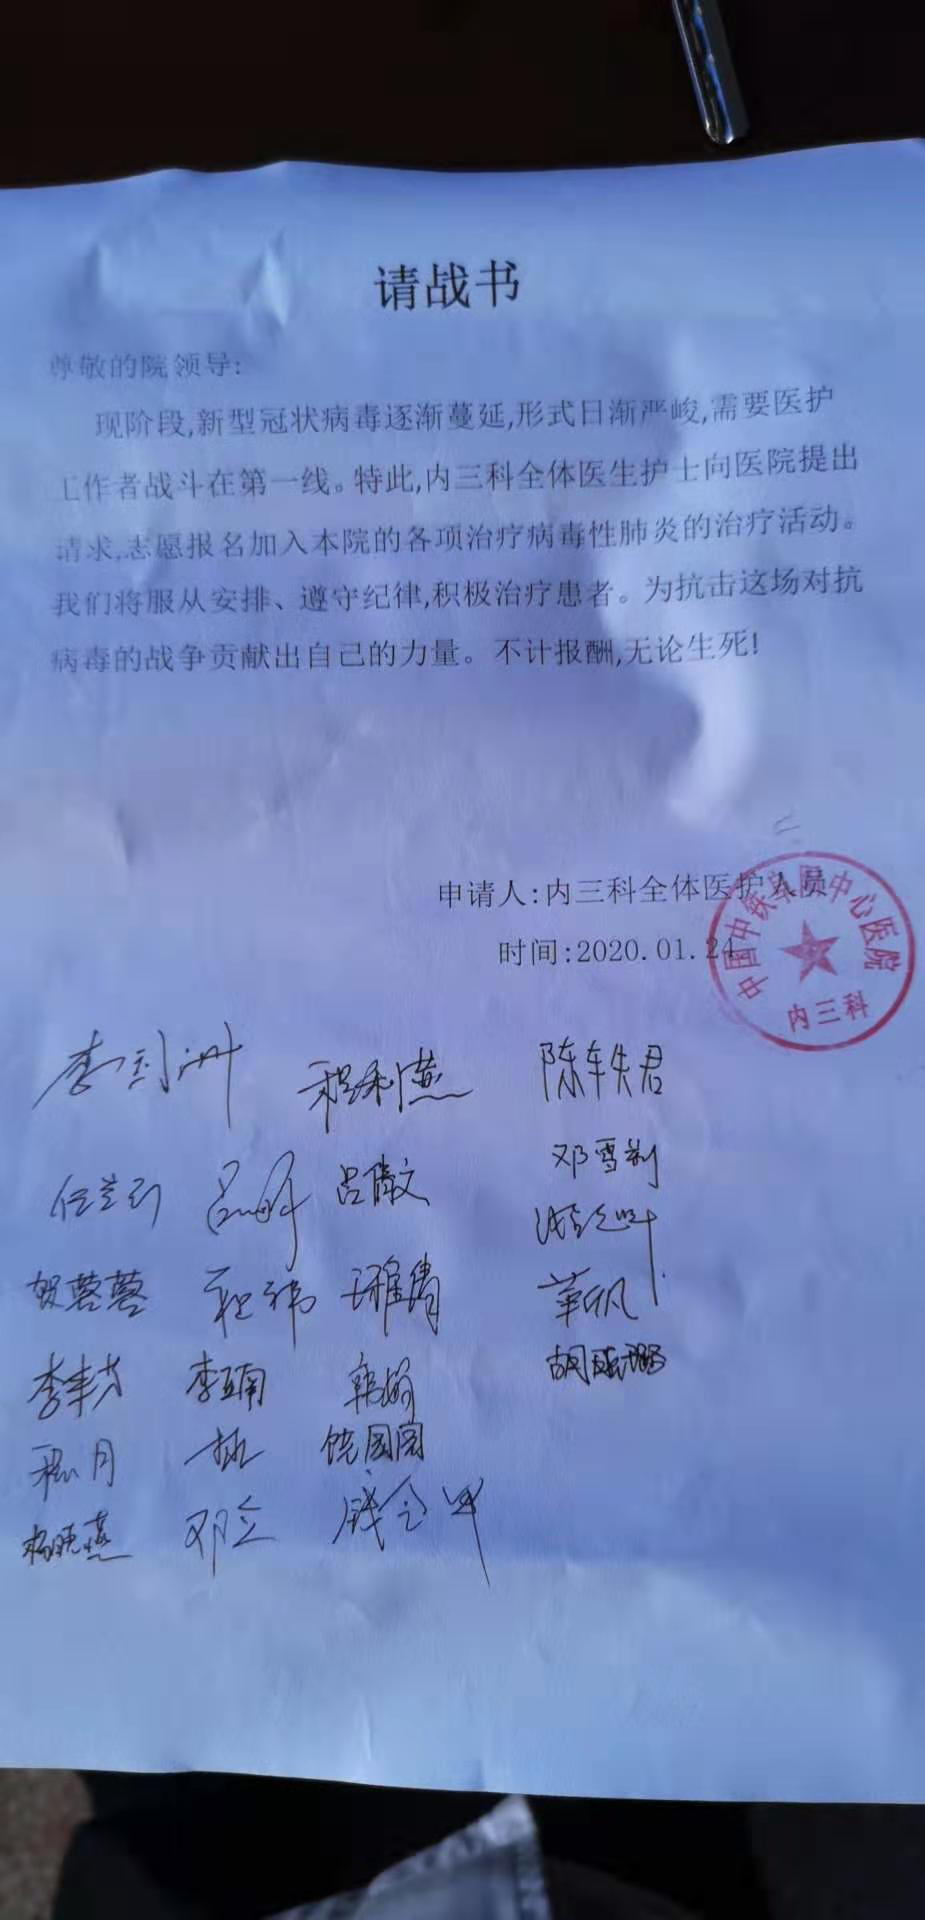 请战书
尊敬的院领导:
现阶段,新型冠状病毒逐渐蔓延,形式日渐严峻,需要医护
工作者战斗在第一线。特此,内三科全体医生护士向医院提出
请求,志愿报名加入本院的各项治疗病毒性肺炎的治疗活动。
我们将服从安排、遵守纪律,积极治疗患者。为抗击这场对抗
病毒的战争贡献出自己的力量。不计报酬,无论生死!
申请人:内三科全体医护人员
时间:2020.01.24
中国中铁阜阳中心医院
内三科
程利燕
邓雪
吕傲文
贺蓉蓉
李亚南
程月
饶园园
杨晓燕
邓立